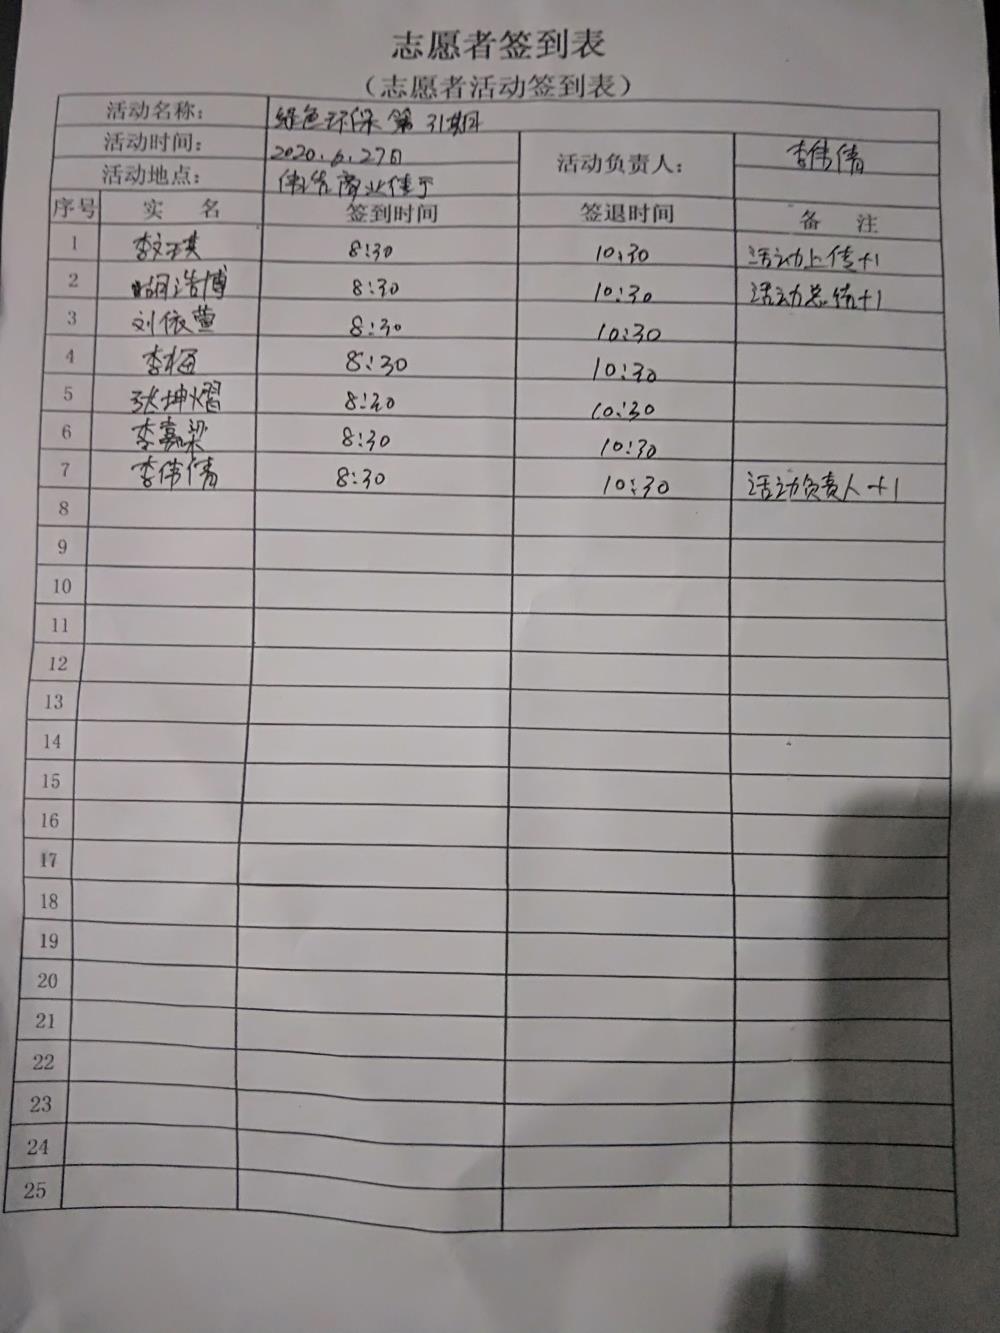 志愿者签到表
（志愿者活动签到表）
活动名称： 绿色环保第31期
活动时间： 2020.6.27日 活动负责人： 李伟倩
活动地点： 商业
序号 实 名 签到时间 签退时间 备 注
1 李文琪 8:30 10:30 活动上传+1
2 胡浩博 8:30 10:30 活动总结+1
3 刘依萱 8:30 10:30
4 李梅 8:30 10:30
5 张坤熠 8:30 10:30
6 李嘉梁 8:30 10:30
7 李伟倩 8:30 10:30 活动负责人+1
8
9
10
11
12
13
14
15
16
17
18
19
20
21
22
23
24
25